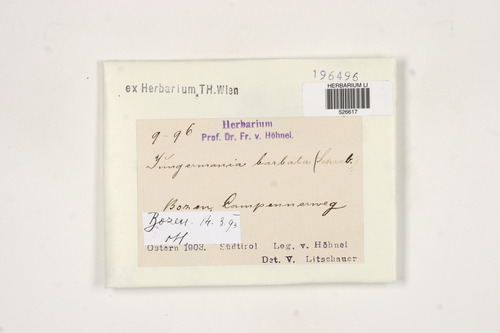 196496
HERBARIUM LI
526617
ex Herbarium, TH. Wien
9-96
Herbarium
Prof. Dr. Fr. v. Höhnel.
Jungermania barbata (Schreb.
Bozen, Campennerweg
Bozen. 14.3.93
Ostern 1903. Südtirol Leg. v. Höhnel
Det. V. Litschauer